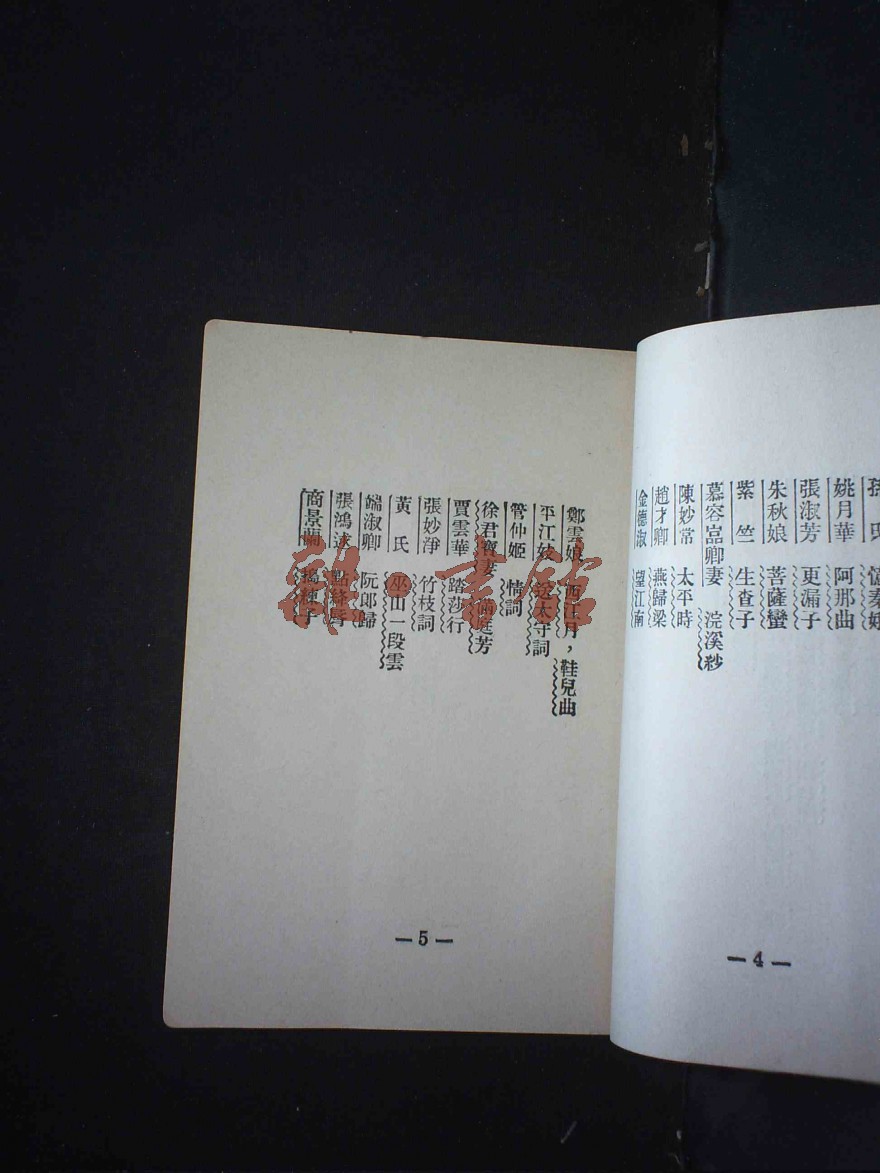 孫氏 憶秦娥
姚月華 阿那曲
張淑芳 更漏子
朱秋娘 菩薩蠻
紫竺 生查子
慕容嵓卿妻 浣溪紗
陳妙常 太平時
趙才卿 燕歸梁
金德淑 望江南
—4—
鄭雲娘 西江月，鞋兒曲
平江妓 送太守詞
管仲姬 情詞
徐君寶妻 滿庭芳
賈雲華 踏莎行
張妙淨 竹枝詞
黃氏 巫山一段雲
端淑卿 阮郎歸
張鴻逑 點絳唇
商景蘭 搗練子
—5—
雜·書館